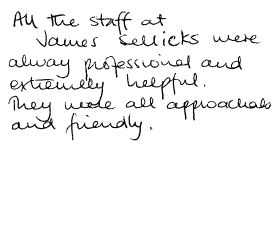 All the staff at
James Sellicks were
alway professional and
extremely helpful.
They were all approachab
and friendly.